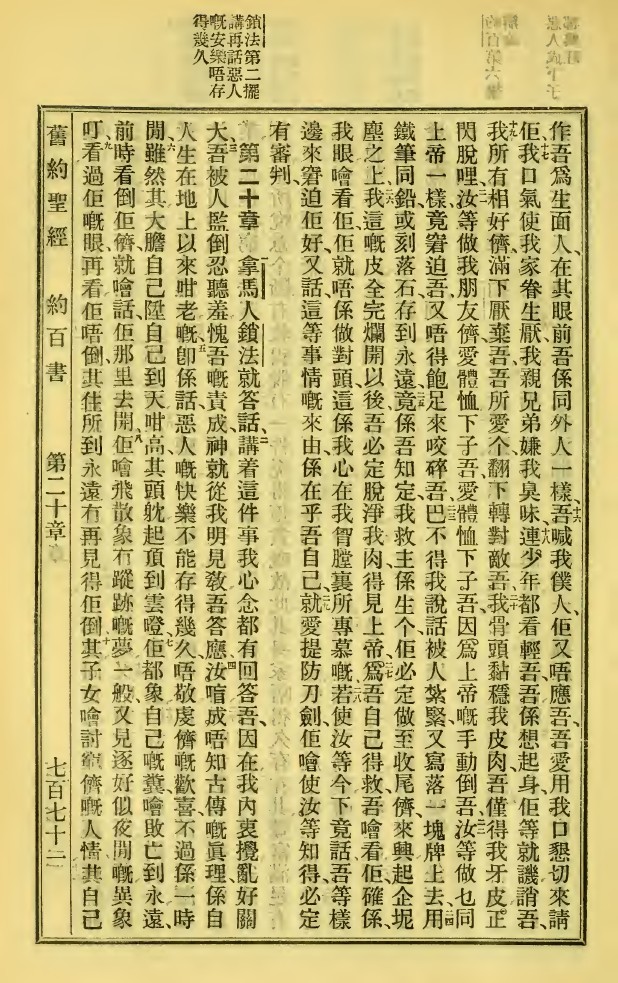 鎖法第二擺
講再話惡人
嘅安樂唔存
得幾久
作吾爲生面人、在其眼前吾係同外人一樣、十六吾喊我僕人、佢又唔應吾、吾愛用我口懇切來請
佢、十七我口氣使我家眷生厭、我親兄弟嫌我臭味、十八連少年都看輕吾、吾係想起身、佢等就譏誚吾、
十九我所有相好儕、滿下厭棄吾、吾所愛个翻下轉對敵吾、二十我骨頭黏穩我皮肉、吾僅得我牙皮正
閃脫哩、二一汝等做我朋友儕、愛體恤下子吾、愛體恤下子吾、因爲上帝嘅手動倒吾、二二汝等做乜同
上帝一樣、竟窘迫吾、又唔得飽足來咬碎吾、二三巴不得我說話被人紮緊、又寫落一塊牌上去、二四用
鐵筆同鉛、或刻落石存到永遠、二五竟係吾知定、我救主係生个、佢必定做至收尾儕、來興起企坭
塵之上、二六我這嘅皮全完爛開以後、吾必定脫淨我肉、得見上帝、二七爲吾自己得救、吾噲看佢、確係
我眼噲看佢、佢就唔係做對頭、這係我心在我胷膛裏所專慕嘅、二八若使汝等今下竟話、吾等樣
邊來窘迫佢好、又話、這等事情嘅來由係在乎吾自己、二九就愛提防刀劍、佢噲使汝等知得必定
有審判、
第二十章 拿馬人鎖法就答話、二講着這件事我心念都有回答吾、因在我內衷攪亂好關
大、三吾被人監倒忍聽羞愧吾嘅責成、神就從我明見敎吾答應、四汝唷成唔知古傳嘅眞理、係自
人生在地上以來咁老嘅、五卽係話惡人嘅快樂不能存得幾久、唔敬虔儕嘅歡喜不過係一時
閒、六雖然其大膽自己陞自己到天咁高、其頭躴起頂到雲噔、七佢都象自己嘅糞噲敗亡到永遠、
前時看倒佢儕、就噲話佢那里去開、八佢噲飛散象冇蹤跡嘅夢一般、又見逐好似夜閒嘅異象
叮、九看過佢嘅眼、再看佢唔倒、其住所到永遠冇再見得佢倒、十其子女噲討窮儕嘅人情、其自己
舊約聖經 約百書 第二十章 七百七十二